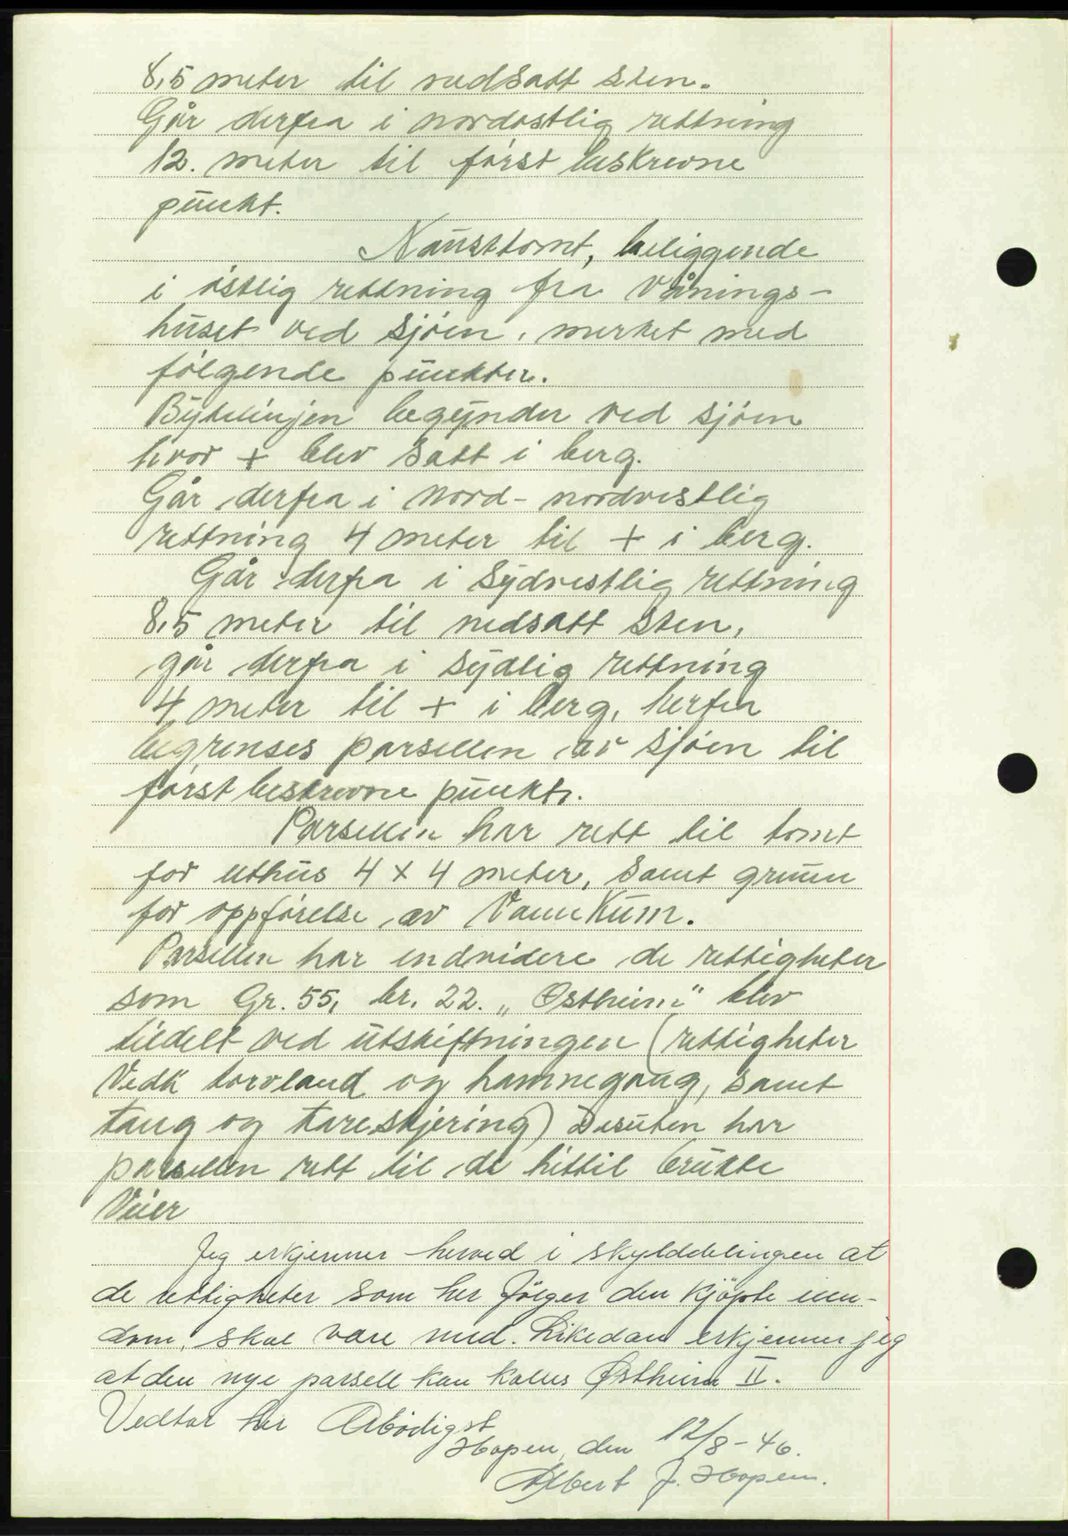 8,5 meter til nedsatt sten.
Går derfra i nordøstlig rettning
12. meter til först beskrevne
punkt.
Nausttomt, beliggende
i östlig rettning fra Vånings-
huset ved sjöen, merket med
fölgende punkter.
Bytelinjen begynder ved sjöen
hvor + blev satt i berg.
Går derfra i nord-nordvestlig
rettning 4 meter til + i berg.
Går derfra i Sydvestlig rettning
8,5 meter til nedsatt sten,
går derfra i sydlig rettning
4 meter til + i berg, herfra
begrenses parsellen av sjöen til
först beskrevne punkt.
Parsellen har rett til tomt
for uthus 4 x 4 meter, samt grunn
for oppförelse av Vann Kum.
Parsellen har endvidere de rettigheter
som Gr. 55, br. 22. „Östheim" blev
tildelt ved utskiftningen (rettigheter
Vedk torvland og hamnegang, samt
tang og tareskjering) Desuten har
parsellen rett til de hittil brukte
Veier
Jeg erkjenner herved i skylddelingen at
de rettigheter som her fölger den kjöpte eien-
dom, skal være med. Likedan erkjenner jeg
at den nye parsell kan kalles Östheim II.
Vedtar her Ærbödigst
Hopen, den 12/8-46.
Albert J. Hopen.